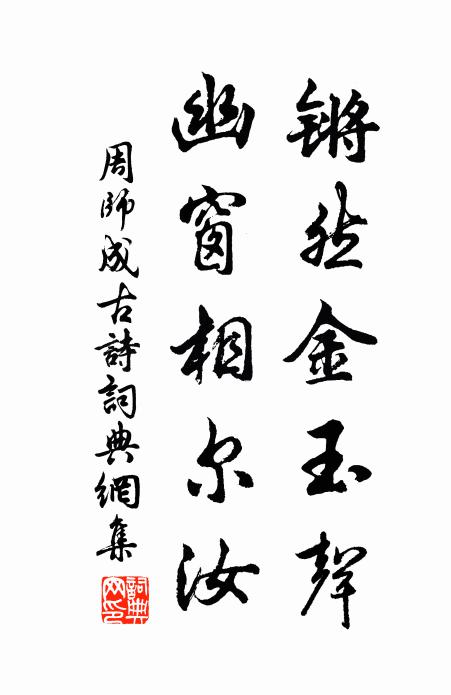 锵然金玉聲
幽窗相尔汝
周師成古詩詞典網集
詞典網印